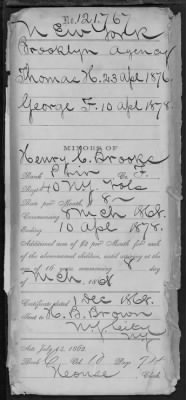 No. 121.767
New York
Brooklyn Agency
Thomas H. 23 apl 1876.
George F. 10 apl 1878.
MINORS OF
Henry C. Brooks
Rank Priv Co. F.
Regt 40 NY Vols
Rate per Month $8
Commencing 8 Mch 1868.
Ending 10 apl 1878.
Additional sum of $2 per Month for each
of the abovenamed children, until arriving at the
age of 16 years commencing 8
Mch. 1868
Certificate dated 1 Dec 1868.
Sent to H. B. Brown
NY City
NY
Act: July 14, 1862.
Book Vol. 10 Page 74
Clerk